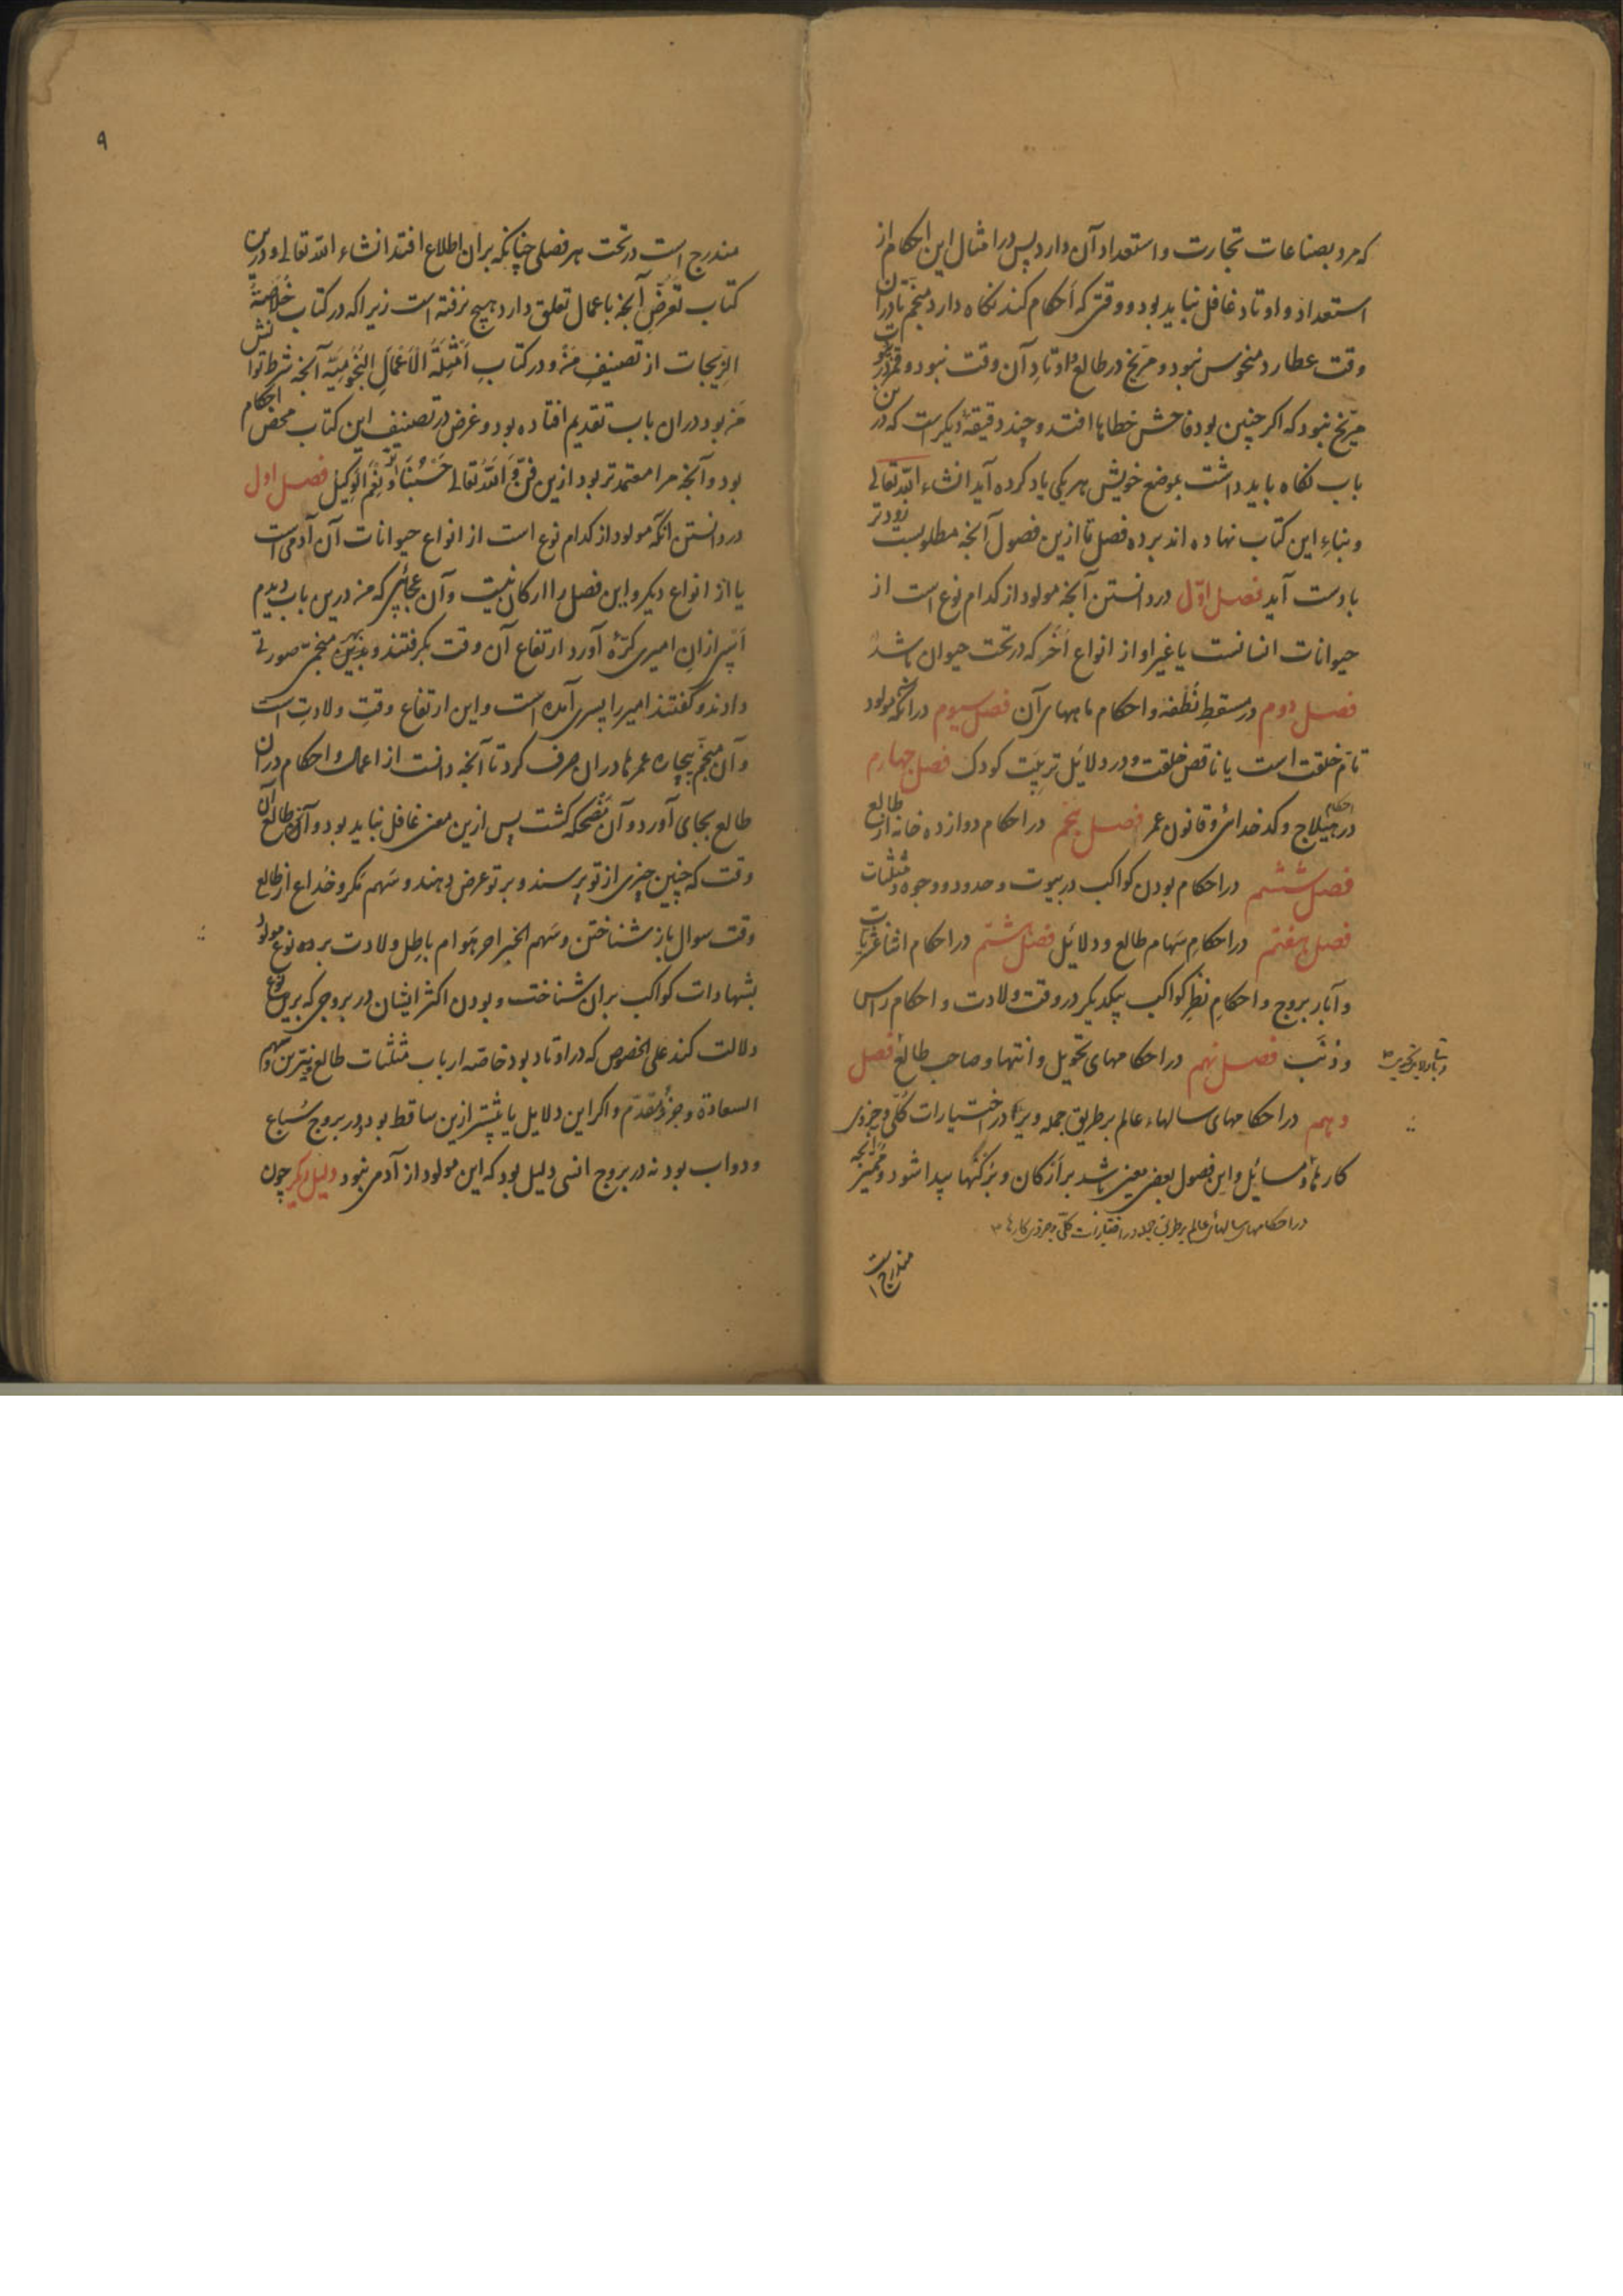 که مرد بصناعات تجارت و استعداد آن دارد پس در امثال این احکام از
استعداد و اوتاد غافل نباید بود و وقتی که احکام کند نگاه دارد منجم تا در آن
وقت عطارد منحوس نبود و مریخ در طالع و اوتادِ آن وقت نبود و قمر در
مریخ نبود که اگر چنین بود فاحش خطاها افتد و چند دقیقهٔ دیگر است که در
باب نگاه باید داشت بموضع خویش هر یکی یاد کرده آید انشاء الله تعالی
و بناءِ این کتاب نهاده اند بر ده فصل تا ازین فصول آنچه مطلوبست زودتر
بادست آید فصل اوّل در دانستن آنچه مولود از کدام نوع است از
حیوانات انسانست یا غیر او از انواع اُخَر که در تحت حیوان باشد
فصل دوم در مسقطِ نُطفه و احکام ماههای آن فصل سیوم در آنکه مولود
تامّ خلقت است یا ناقص خلقت و در دلائل تربیَت کودک فصل چهارم
در احکام هیلاج و کدخدائی و قانون عمر فصل پنجم در احکام دوازده خانه از طالع
فصل ششم در احکام بودن کواکب در بیوت و حدود و وجوه و مُثلّثات
فصل هفتم در احکامِ سَهام طالع و دلائل فصل هشتم در احکام اثناعشریات
و آبار بروج و احکامِ نظرِ کواکب بیکدیگر در وقت ولادت و احکام راس
و ذنَب فصل نهم در احکامهای تحویل و انتها و صاحب طالع فصل
دهم در احکامهای سالهاء عالم بر طریق جمله و در اختیارات کُلّی و جزوی
کارها و مسائل و این فصول بعضی معین باشد بر ارکان و بزرگیها پیدا شود و ممیّز آنچه
در احکامهای سالهای عالم بر طریق جمله در اختیارات کلّی و جزوی کارها ۳
مندرج است
۹
مندرج است در تحت هر فصلی چنانکه بر آن اطلاع افتد انشاء الله تعالی و درین
کتاب تعرّضِ آنچه باعمال تعلق دارد هیچ نرفته است زیرا که در کتاب خُلاصَة
الزّیجات از تصنیفِ من و در کتابِ اَمْثِلَةُ الْاَعْمالِ النُجومِیّة آنچه شرط توانش
من بود در آن باب تقدیم افتاده بود و غرض در تصنیف این کتاب محض احکام
بود و آنچه مرا معتمدتر بود ازین فنّ و الله تعالی حَسْبُنا و نِعْمَ الوَکیل فصل اول
در دانستن آنکه مولود از کدام نوع است از انواع حیوانات آن آدمی است
یا از انواع دیگر و این فصل را ارکان نیست و آن عجائبی که من درین باب دیدم
اَسْپی از آنِ امیری کُرّهٔ آورد ارتفاع آن وقت بگرفتند و بنزدیک منجمی صورتی
دادند و گفتند امیر را پسری آمده است و این ارتفاع وقتِ ولادتِ است
و آن منجّم بیچاره عمرها در آن صرف کرد تا آنچه دانست از اعمال و احکام در آن
طالع بجای آورد و آن مضحکه گشت پس ازین معنی غافل نباید بود و آنکه طالع آن
وقت که چنین چیزی از تو پرسند و بر تو عرض دهند و سَهم مکر و خداع از طالع
وقت سوال باز شناختن و سَهم الخیر احر هَوام باطِل ولادت بر ده نوع مولود
بشهادات کواکب بر آن شناخت و بودن اکثر ایشان در بروجی که بر نوع
دلالت کند علی الخصوص که در اوتاد بود خاصّه ارباب مثلثات طالع و نیّرین و سهم
السعادة و جزوُ مُقدّم و اگر این دلایل یا بیشتر ازین ساقط بود و در بروج سُباع
و دواب بود نه در بروج انسی دلیل بود که این مولود از آدمی نبود دلیل دیگر چون